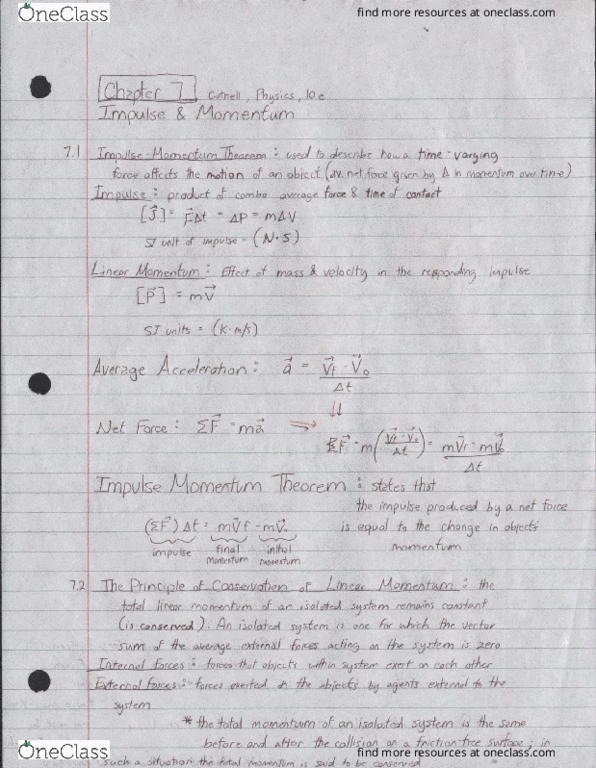 OneClass
find more resources at oneclass.com
Chapter 7 Cutnell, Physics, 10e
Impulse & Momentum
7.1 Impulse-Momentum Theorem: used to describe how a time-varying
force affects the motion of an object (av. net force given by Δ in momentum over time)
Impulse: product of combo average force & time of contact
[J⃗] = F⃗Δt = ΔP = mΔV
SI unit of impulse = (N·S)
Linear Momentum: Effect of mass & velocity in the responding impulse
[P⃗] = mV⃗
SI units = (K·m/s)
Average Acceleration: a⃗ = V⃗f - V⃗o / Δt
Net Force: ΣF⃗ = ma⃗ ⇒ ΣF⃗ = m(V⃗f - V⃗o / Δt) = mV⃗f - mV⃗o / Δt
Impulse Momentum Theorem: states that
the impulse produced by a net force
(ΣF⃗)Δt = mV⃗f - mV⃗o is equal to the change in objects
impulse final momentum initial momentum momentum
7.2 The Principle of Conservation of Linear Momentum: the
total linear momentum of an isolated system remains constant
(is conserved). An isolated system is one for which the vector
sum of the average external forces acting on the system is zero
Internal forces: forces that objects within system exert on each other
External forces: forces exerted on the objects by agents external to the
system
* the total momentum of an isolated system is the same
before and after the collision on a friction-free surface; in
such a situation the total momentum is said to be conserved
OneClass
find more resources at oneclass.com